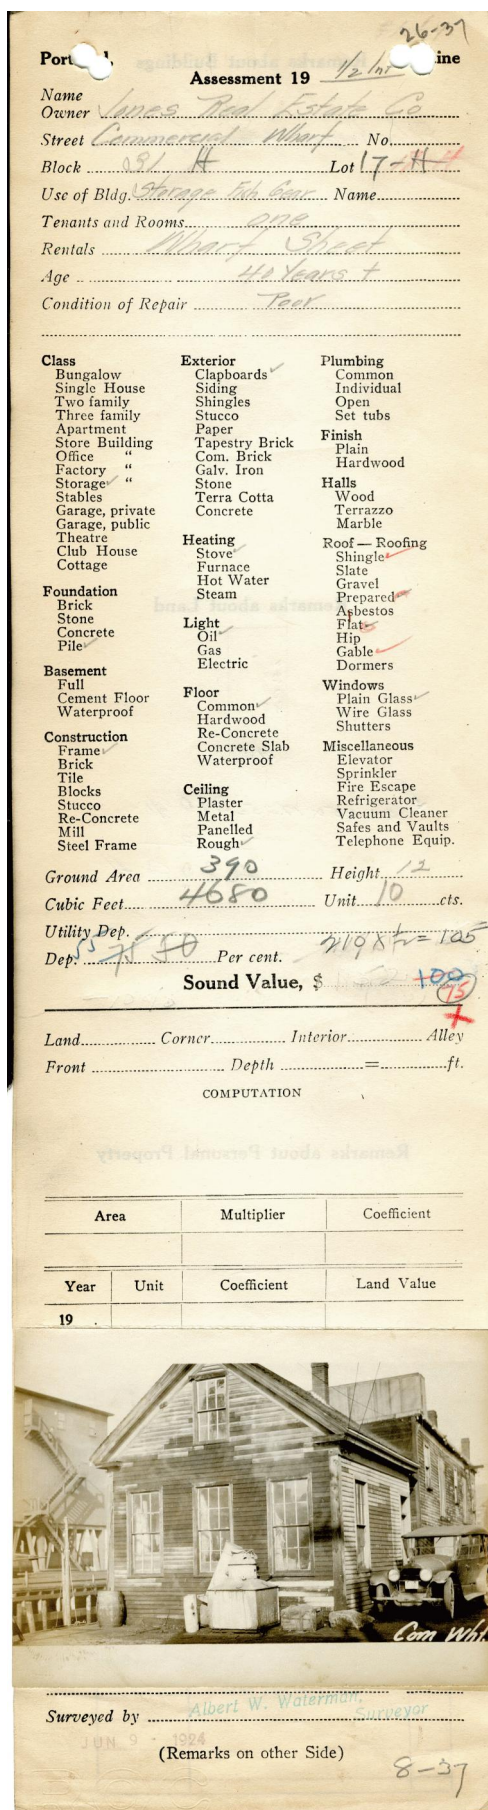 26-37
Port ine
Assessment 19 1/2 Int
Name
Owner Jones Real Estate Co
Street Commercial Wharf No.
Block H Lot 17-H
Use of Bldg. Storage Fish Gear Name
Tenants and Rooms one
Rentals Wharf Sheet
Age 40 Years +
Condition of Repair Poor
Class
Bungalow
Single House
Two family
Three family
Apartment
Store Building
Office "
Factory "
Storage "
Stables
Garage, private
Garage, public
Theatre
Club House
Cottage
Foundation
Brick
Stone
Concrete
Pile
Basement
Full
Cement Floor
Waterproof
Construction
Frame
Brick
Tile
Blocks
Stucco
Re-Concrete
Mill
Steel Frame
Exterior
Clapboards
Siding
Shingles
Stucco
Paper
Tapestry Brick
Com. Brick
Galv. Iron
Stone
Terra Cotta
Concrete
Heating
Stove
Furnace
Hot Water
Steam
Light
Oil
Gas
Electric
Floor
Common
Hardwood
Re-Concrete
Concrete Slab
Waterproof
Ceiling
Plaster
Metal
Panelled
Rough
Plumbing
Common
Individual
Open
Set tubs
Finish
Plain
Hardwood
Halls
Wood
Terrazzo
Marble
Roof — Roofing
Shingle
Slate
Gravel
Prepared
Asbestos
Flat
Hip
Gable
Dormers
Windows
Plain Glass
Wire Glass
Shutters
Miscellaneous
Elevator
Sprinkler
Fire Escape
Refrigerator
Vacuum Cleaner
Safes and Vaults
Telephone Equip.
Ground Area 390 Height 12
Cubic Feet 4680 Unit 10 cts.
Utility Dep. 219 x 1/2 = 105
Dep. 55 75 50 Per cent.
Sound Value, $ 100
75
Land Corner Interior Alley
Front Depth = ft.
COMPUTATION
Remarks about Personal Property
Area Multiplier Coefficient
Year Unit Coefficient Land Value
19 .
Com Whf
Surveyed by Albert W. Waterman,
Surveyor
JUN 9 - 1924
(Remarks on other Side)
8-37